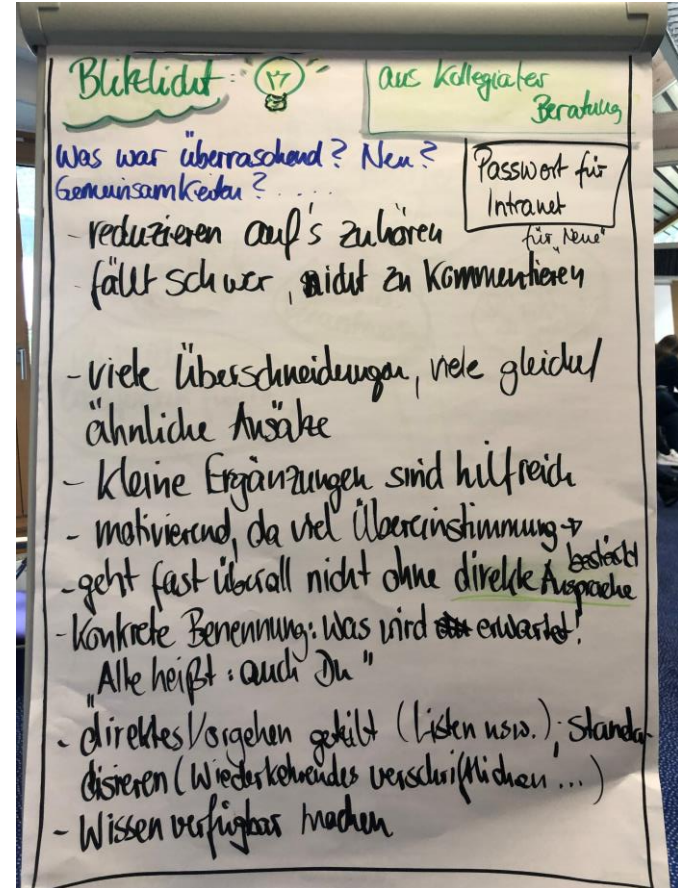 Blitzlicht:
aus Kollegialer
Beratung
Was war überraschend? Neu?
Gemeinsamkeiten? . . . . .
Passwort für
Intranet
für "Neue"
- reduzieren auf's zuhören
- fällt schwer, nicht zu kommentieren
- viele Überschneidungen, viele gleiche/
ähnliche Ansätze
- kleine Ergänzungen sind hilfreich
- motivierend, da viel Übereinstimmung →
bestärkt
- geht fast überall nicht ohne direkte Ansprache
- Konkrete Benennung: Was wird erwartet!
"Alle heißt: auch Du"
- direktes Vorgehen geteilt (Listen usw.); standar-
disieren (Wiederkehrendes verschriftlichen ...)
- Wissen verfügbar machen